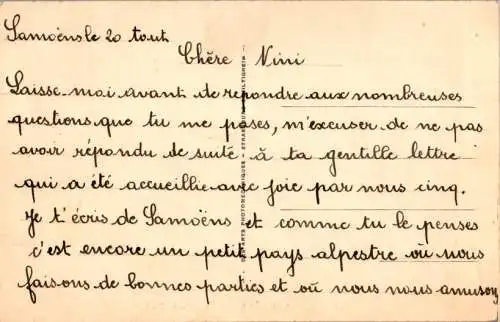 Samoëns le 20 tout
Chère Nini
Laisse-moi avant de repondre aux nombreuses
questions que tu me poses, m'excuser de ne pas
avoir répondu de suite à ta gentille lettre
qui a été accueillie avec joie par nous cinq.
Je t'écris de Samoëns et comme tu le penses
c'est encore un petit pays alpestre où nous
faisons de bonnes parties et où nous nous amusons